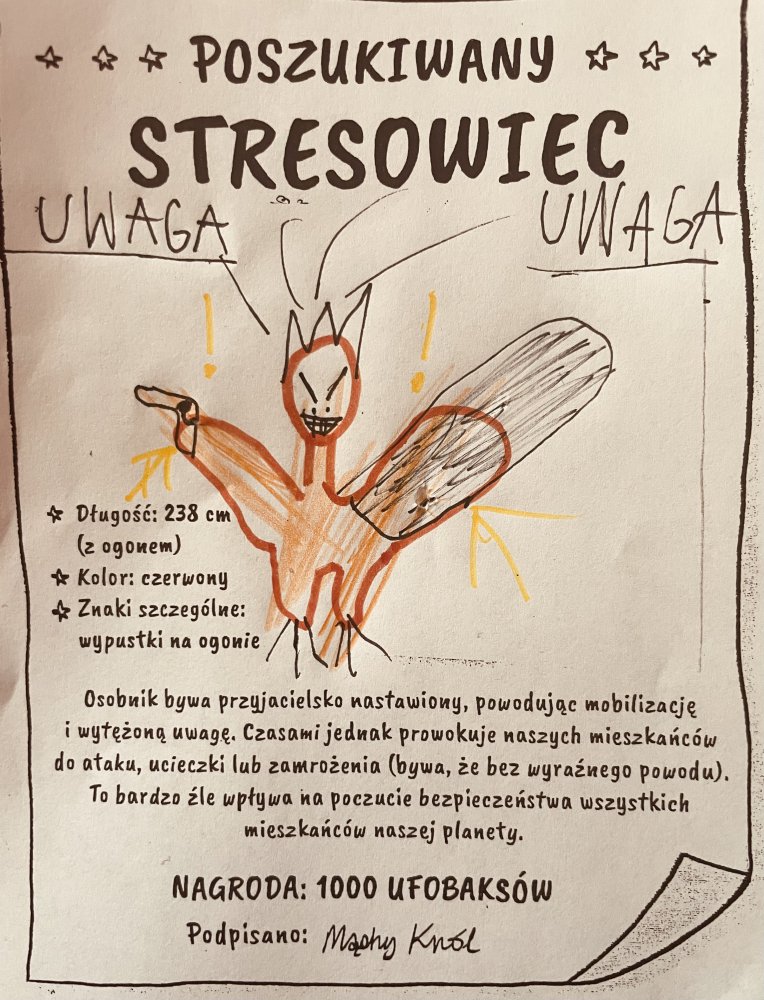 POSZUKIWANY
STRESOWIEC
UWAGA UWAGA
Długość: 238 cm
(z ogonem)
Kolor: czerwony
Znaki szczególne:
wypustki na ogonie
Osobnik bywa przyjacielsko nastawiony, powodując mobilizację
i wytężoną uwagę. Czasami jednak prowokuje naszych mieszkańców
do ataku, ucieczki lub zamrożenia (bywa, że bez wyraźnego powodu).
To bardzo źle wpływa na poczucie bezpieczeństwa wszystkich
mieszkańców naszej planety.
NAGRODA: 1000 UFOBAKSÓW
Podpisano: Mądry Król